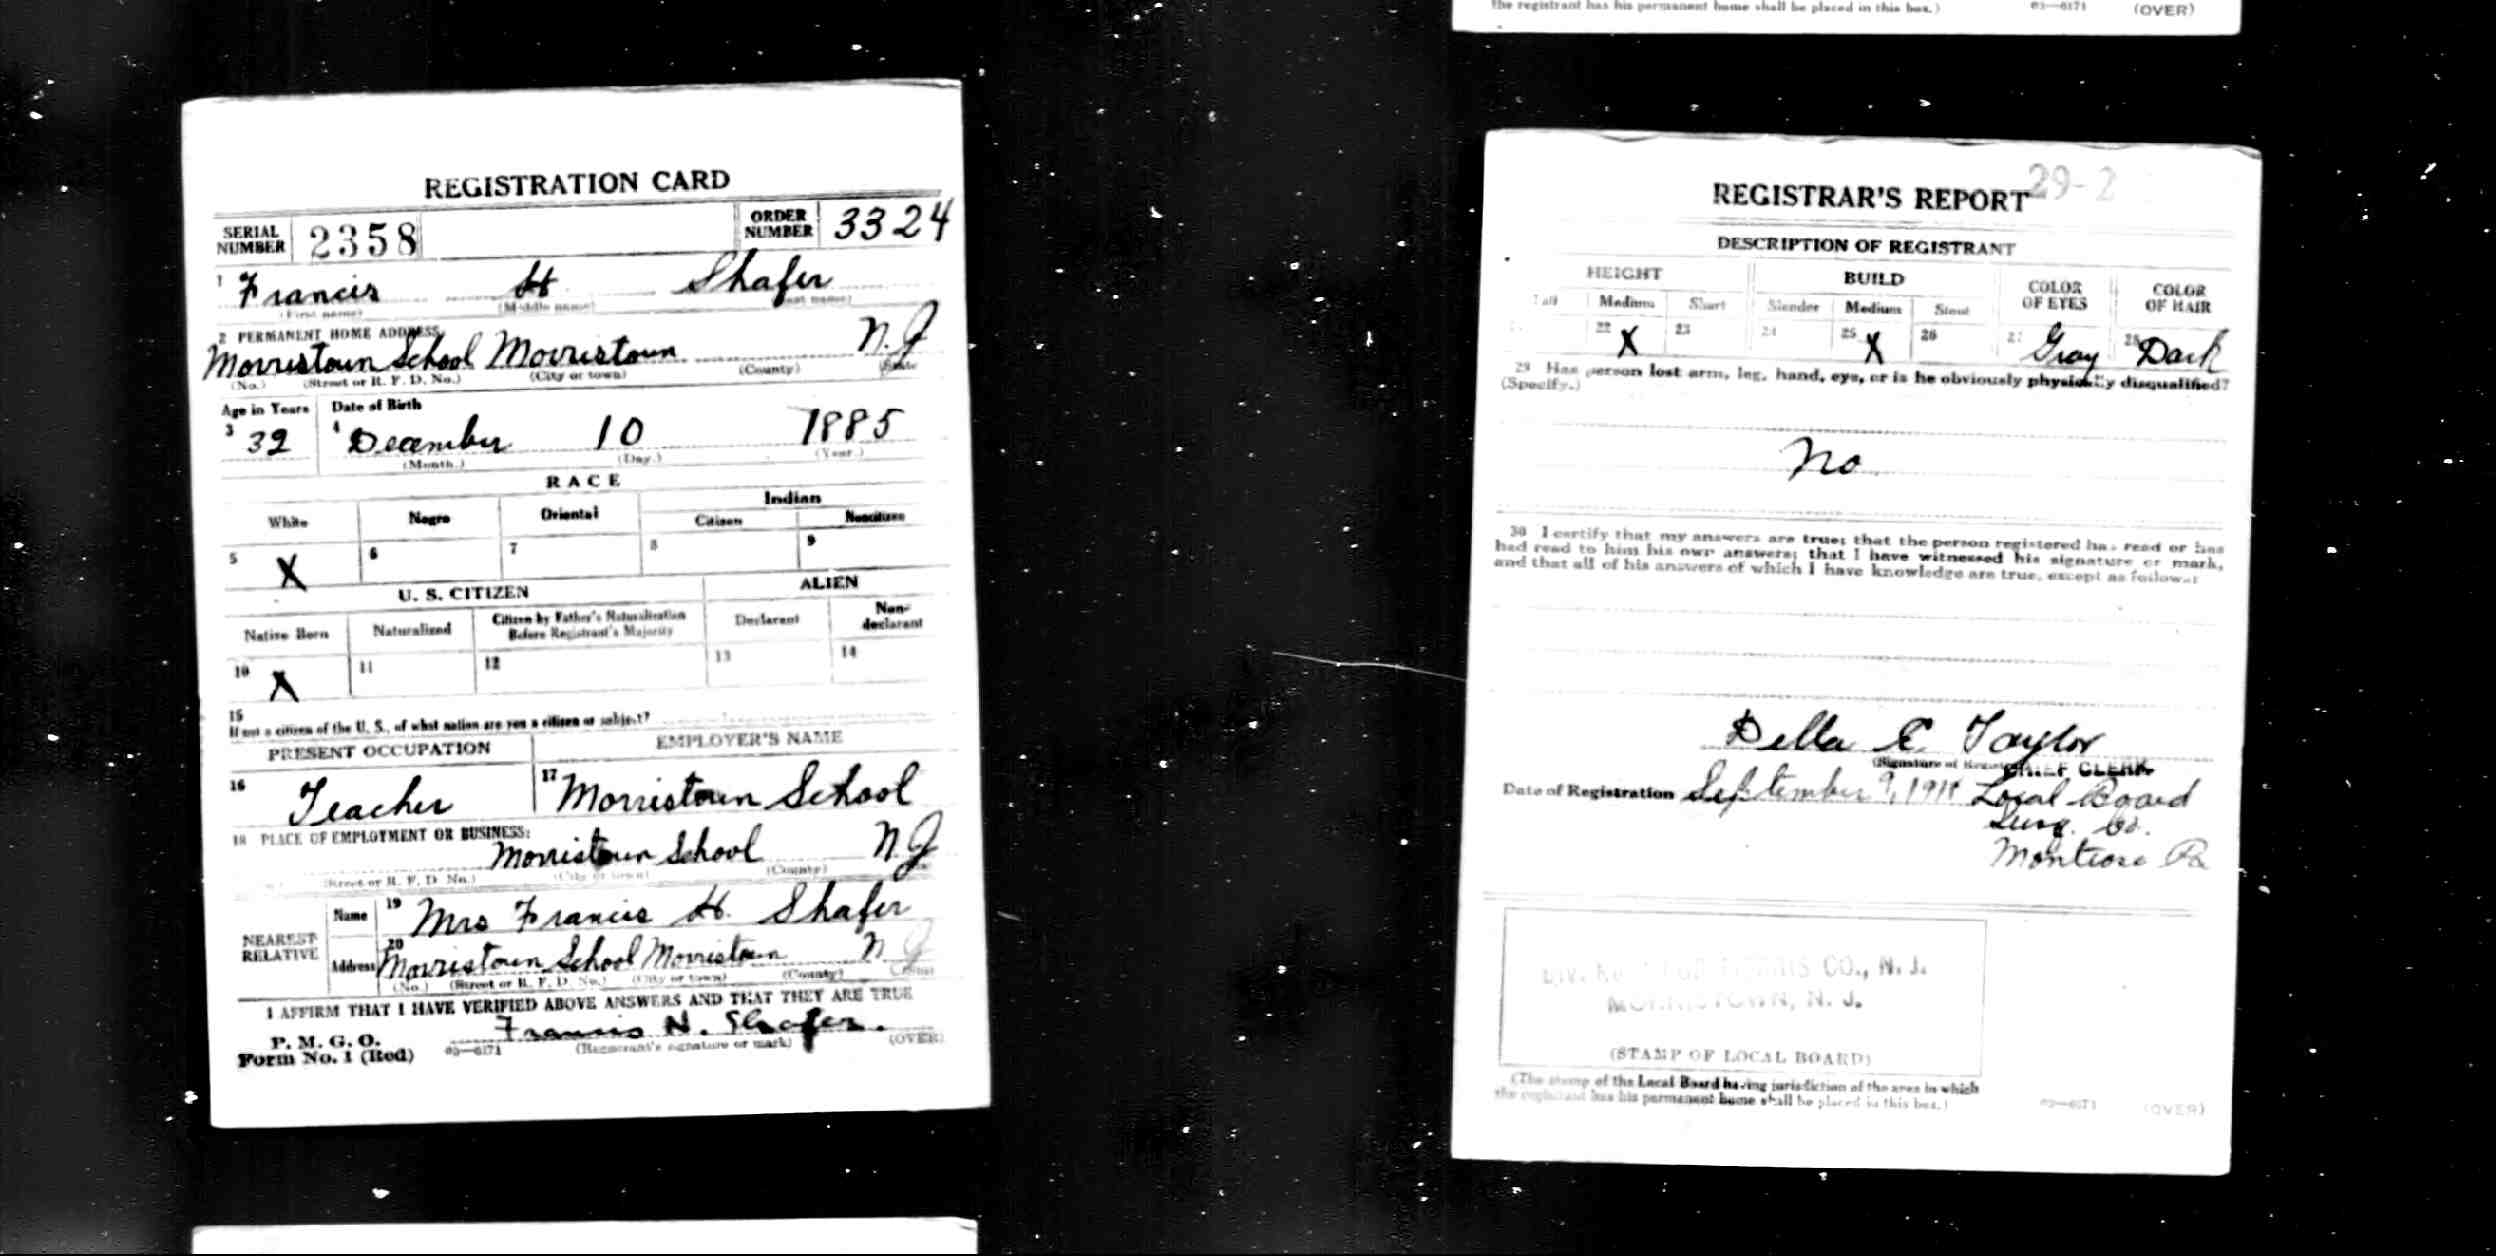 the registrant has his permanent home shall be placed in this box.) 03—6171 (OVER)
REGISTRATION CARD
SERIAL NUMBER 2358 ORDER NUMBER 3324
1 Francis H. Shafer
(First name) (Middle name) (Last name)
2 PERMANENT HOME ADDRESS:
Morristown School Morristown N.J
(No.) (Street or R. F. D. No.) (City or town) (County) (State
Age in Years Date of Birth
3 32 4 December 10 1885
(Month.) (Day.) (Year.)
RACE
White Negro Oriental Indian
Citizen Noncitizen
5 X 6 7 8 9
U. S. CITIZEN ALIEN
Native Born Naturalized Citizen by Father's Naturalization Before Registrant's Majority Declarant Non-declarant
10 X 11 12 13 14
15
If not a citizen of the U. S., of what nation are you a citizen or subject?
PRESENT OCCUPATION EMPLOYER'S NAME
16 Teacher 17 Morristown School
18 PLACE OF EMPLOYMENT OR BUSINESS:
Morristown School N.J
(Street or R. F. D. No.) (City or town) (County)
NEAREST RELATIVE Name 19 Mrs Francis H. Shafer
Address 20 Morristown School Morristown N.J
(No.) (Street or R. F. D. No.) (City or town) (County) (State)
I AFFIRM THAT I HAVE VERIFIED ABOVE ANSWERS AND THAT THEY ARE TRUE
P. M. G. O.
Form No. 1 (Red) 03—6171 Francis H. Shafer.
(Registrant's signature or mark) (OVER)
REGISTRAR'S REPORT 29-2
DESCRIPTION OF REGISTRANT
HEIGHT BUILD COLOR OF EYES COLOR OF HAIR
Tall Medium Short Slender Medium Stout
22 X 23 24 25 X 26 27 Gray 28 Dark
29 Has person lost arm, leg, hand, eye, or is he obviously physically disqualified?
(Specify.)
No
30 I certify that my answers are true; that the person registered has read or has
had read to him his own answers; that I have witnessed his signature or mark,
and that all of his answers of which I have knowledge are true, except as follows:
Della E. Taylor
(Signature of Registrar) CHIEF CLERK
Date of Registration September 9, 1918 Local Board
Susq. Co.
Montrose Pa
MORRIS CO., N. J.
MORRISTOWN, N. J.
(STAMP OF LOCAL BOARD)
(The stamp of the Local Board having jurisdiction of the area in which
the registrant has his permanent home shall be placed in this box.) 03—6171 (OVER)